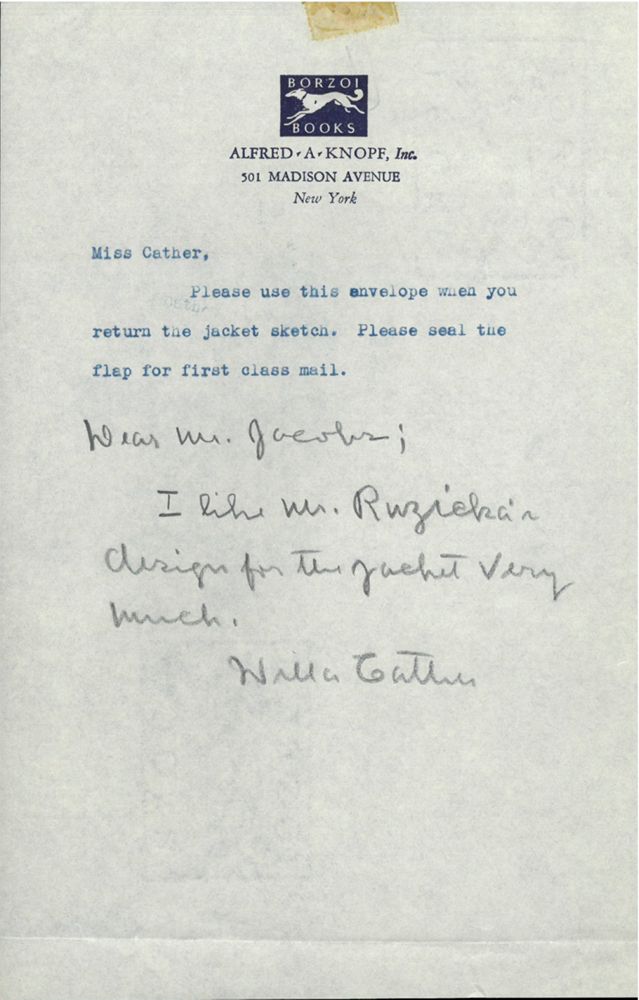 BORZOI
BOOKS
ALFRED · A · KNOPF, Inc.
501 MADISON AVENUE
New York
Miss Cather,
Please use this envelope when you
return the jacket sketch. Please seal the
flap for first class mail.
Dear Mr. Jacobs;
I like Mr. Ruzicka's
design for the jacket very
much.
Willa Cather